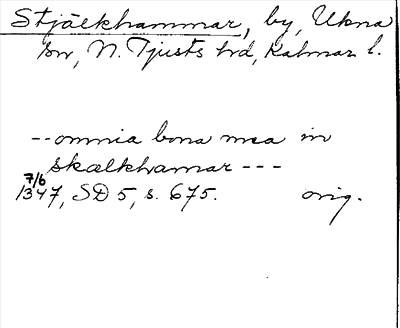 Stjälkhammar, by, Ukna
sn, N. Tjusts hd, Kalmar l.
-- omnia bona mea in
skalkhamar ---
7/6
1347, SD 5, s. 675. orig.